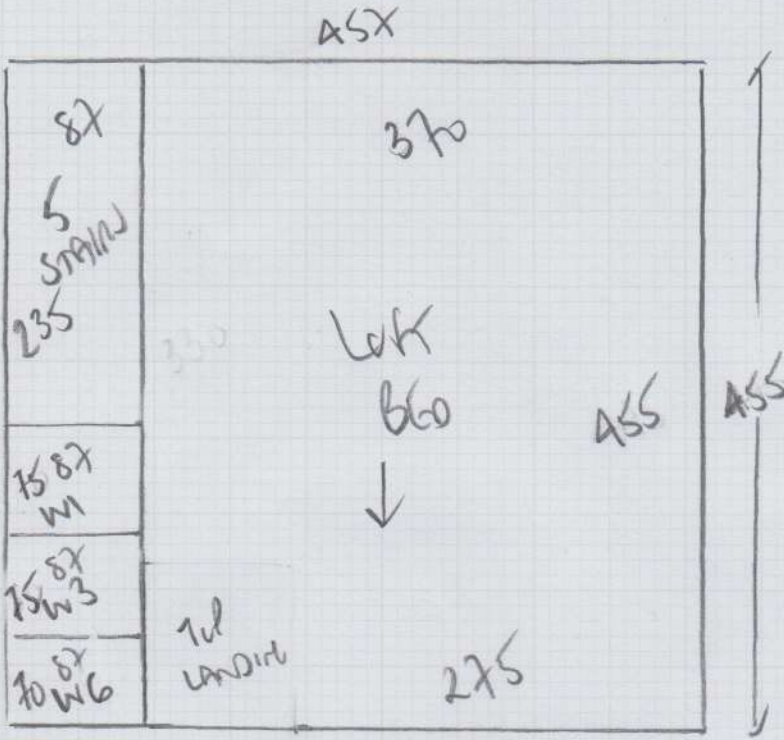 457
87
370
5
STAIRS
235
330
Loft
BED
455
455
75 87
W1
75 87
W3
70 87
W6
LANDING
275